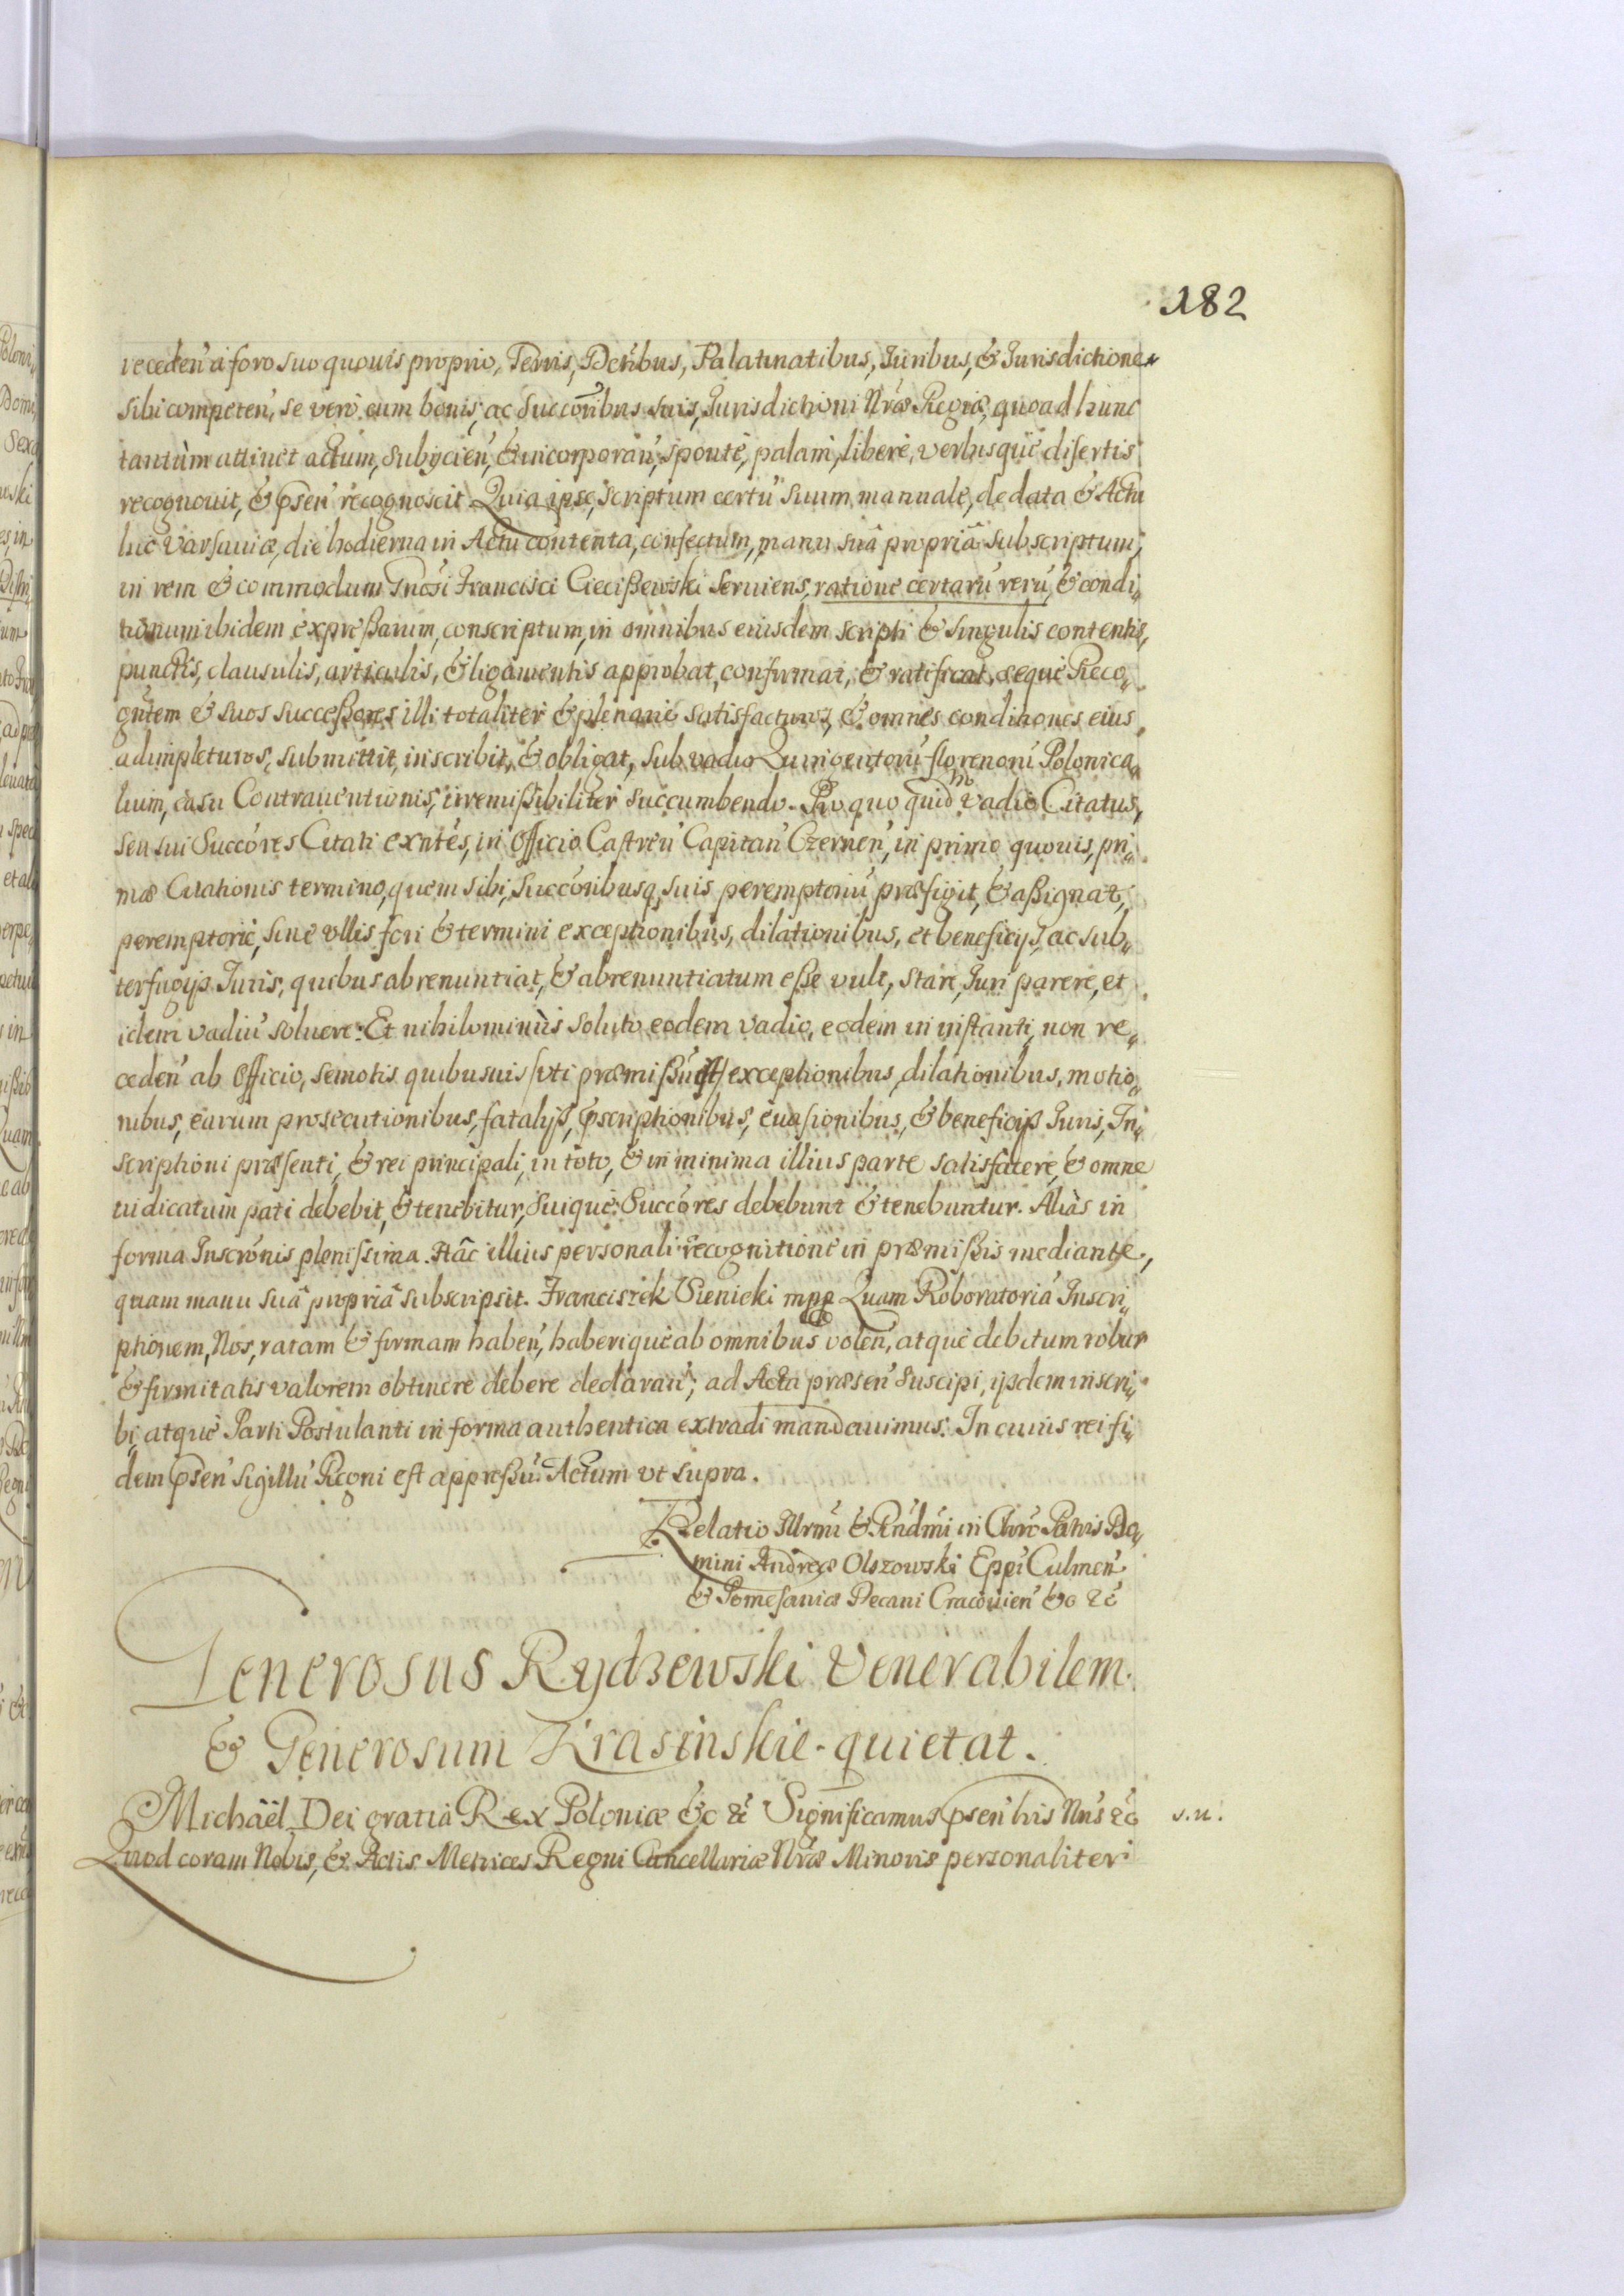 182
receden̄ a foro suo quouis proprio, Terris, Dctibus, Palatinatibus, Iuribus, & Iurisdictione
sibi competen̄, se vero cum bonis, ac Succoribus suis, Iurisdictioni Nrae Regiae, quoad hunc
tantùm attinet actum, subijcien̄, & incorporan̄, sponte, palam, libere, verbisque disertis
recognouit, & psen̄ recognoscit. Quia ipse, scriptum certū suum manuale, de data & Actu
hic Varsauiae, die hodierna in Actu contenta, confectum, manu suâ propriâ subscriptum,
in rem & commodum Gnosi Francisci Ciecißewski seruiens, ratione certarū rerū, & condi„
tionum ibidem expreßarum, conscriptum, in omnibus eiusdem scripti & singulis contentis,
punctis, clausulis, articulis, & ligamentis approbat, confirmat, & ratificat, seque Reco„
gntem & suos succeßores illi totaliter & plenarie satisfacturos, & omnes conditiones eius
adimpleturos, submittit, inscribit, & obligat, sub vadio Quingentorū florenorū Polonica„
lium, casu Contrauentionis, irremißibiliter succumbendo. Pro quo quid vadio Citatus,
seu sui Succóres Citati exntes, in Officio Castren̄ Capitan̄ Czernen̄, in primo quouis, pri„
mae Citationis termino, quem sibi, Succoribusq, suis peremptoriū praefigit, & aßignat,
peremptorie, sine vllis fori & termini exceptionibus, dilationibus, et beneficijs, ac sub„
terfugijs Iuris, quibus abrenuntiat, & abrenuntiatum eße vult, stare, Iuri parere, et
idem vadiū soluere. Et nihilominùs soluto eodem vadio, eodem in instanti, non re„
ceden̄ ab Officio, semotis quibusuis /vti praemißū est/ exceptionibus, dilationibus, motio„
nibus, earum prosecutionibus, fatalijs, pscriptionibus, euasionibus, & beneficijs Iuris, In„
scriptioni praesenti, & rei principali, in toto, & in minima illius parte satisfacere, & omne
iudicatum pati debebit, & tenebitur, suique Succóres debebunt & tenebuntur. Aliàs in
forma Inscronis plenissima. Hâc illius personali recognitione in praemißis mediante,
quam manu suâ propriâ subscripsit. Franciszek Sienicki mpp Quam Roboratoriā Inscri„
ptionem, Nos, ratam & firmam haben̄, haberique ab omnibus volen̄, atque debitum robur
& firmitatis valorem obtinere debere declaran̄; ad Acta praesen̄ suscipi, ijsdem inscri„
bi, atque Parti Postulanti in forma authentica extradi mandauimus. In cuius rei fi„
dem psen̄ Sigillū Regni est appreßū. Actum vt supra.
Relatio Illrmi & Rndmi in Chro Patris Do„
mini Andreae Olszowski Eppi Culmen̄
& Pomesaniae Decani Cracouien̄ &c &c
Generosus Rydzewski Venerabilem
& Generosum Krasinskie quietat.
Michaël Dei gratiâ Rex Poloniae &c &c Significamus psen̄ bis Nris &c
s.n.
Quod coram Nobis, & Actis Metrices Regni Cancellariae Nrae Minoris personaliter